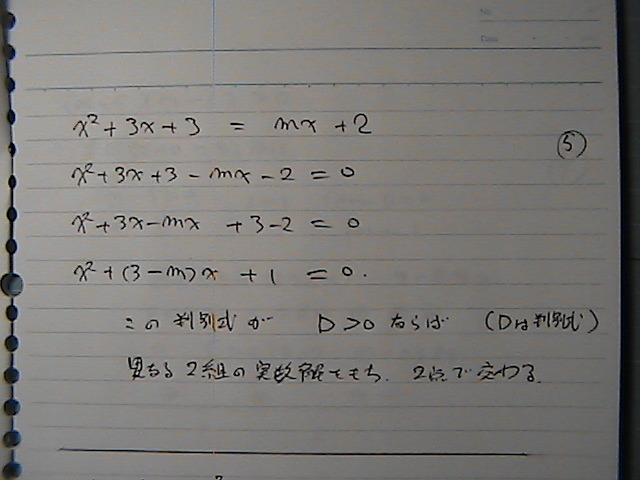 No.
Date
x² + 3x + 3 = mx + 2
⑤
x² + 3x + 3 - mx - 2 = 0
x² + 3x - mx + 3 - 2 = 0
x² + (3 - m)x + 1 = 0.
この判別式が D > 0 ならば (Dは判別式)
異なる2組の実数解をもち、2点で交わる。